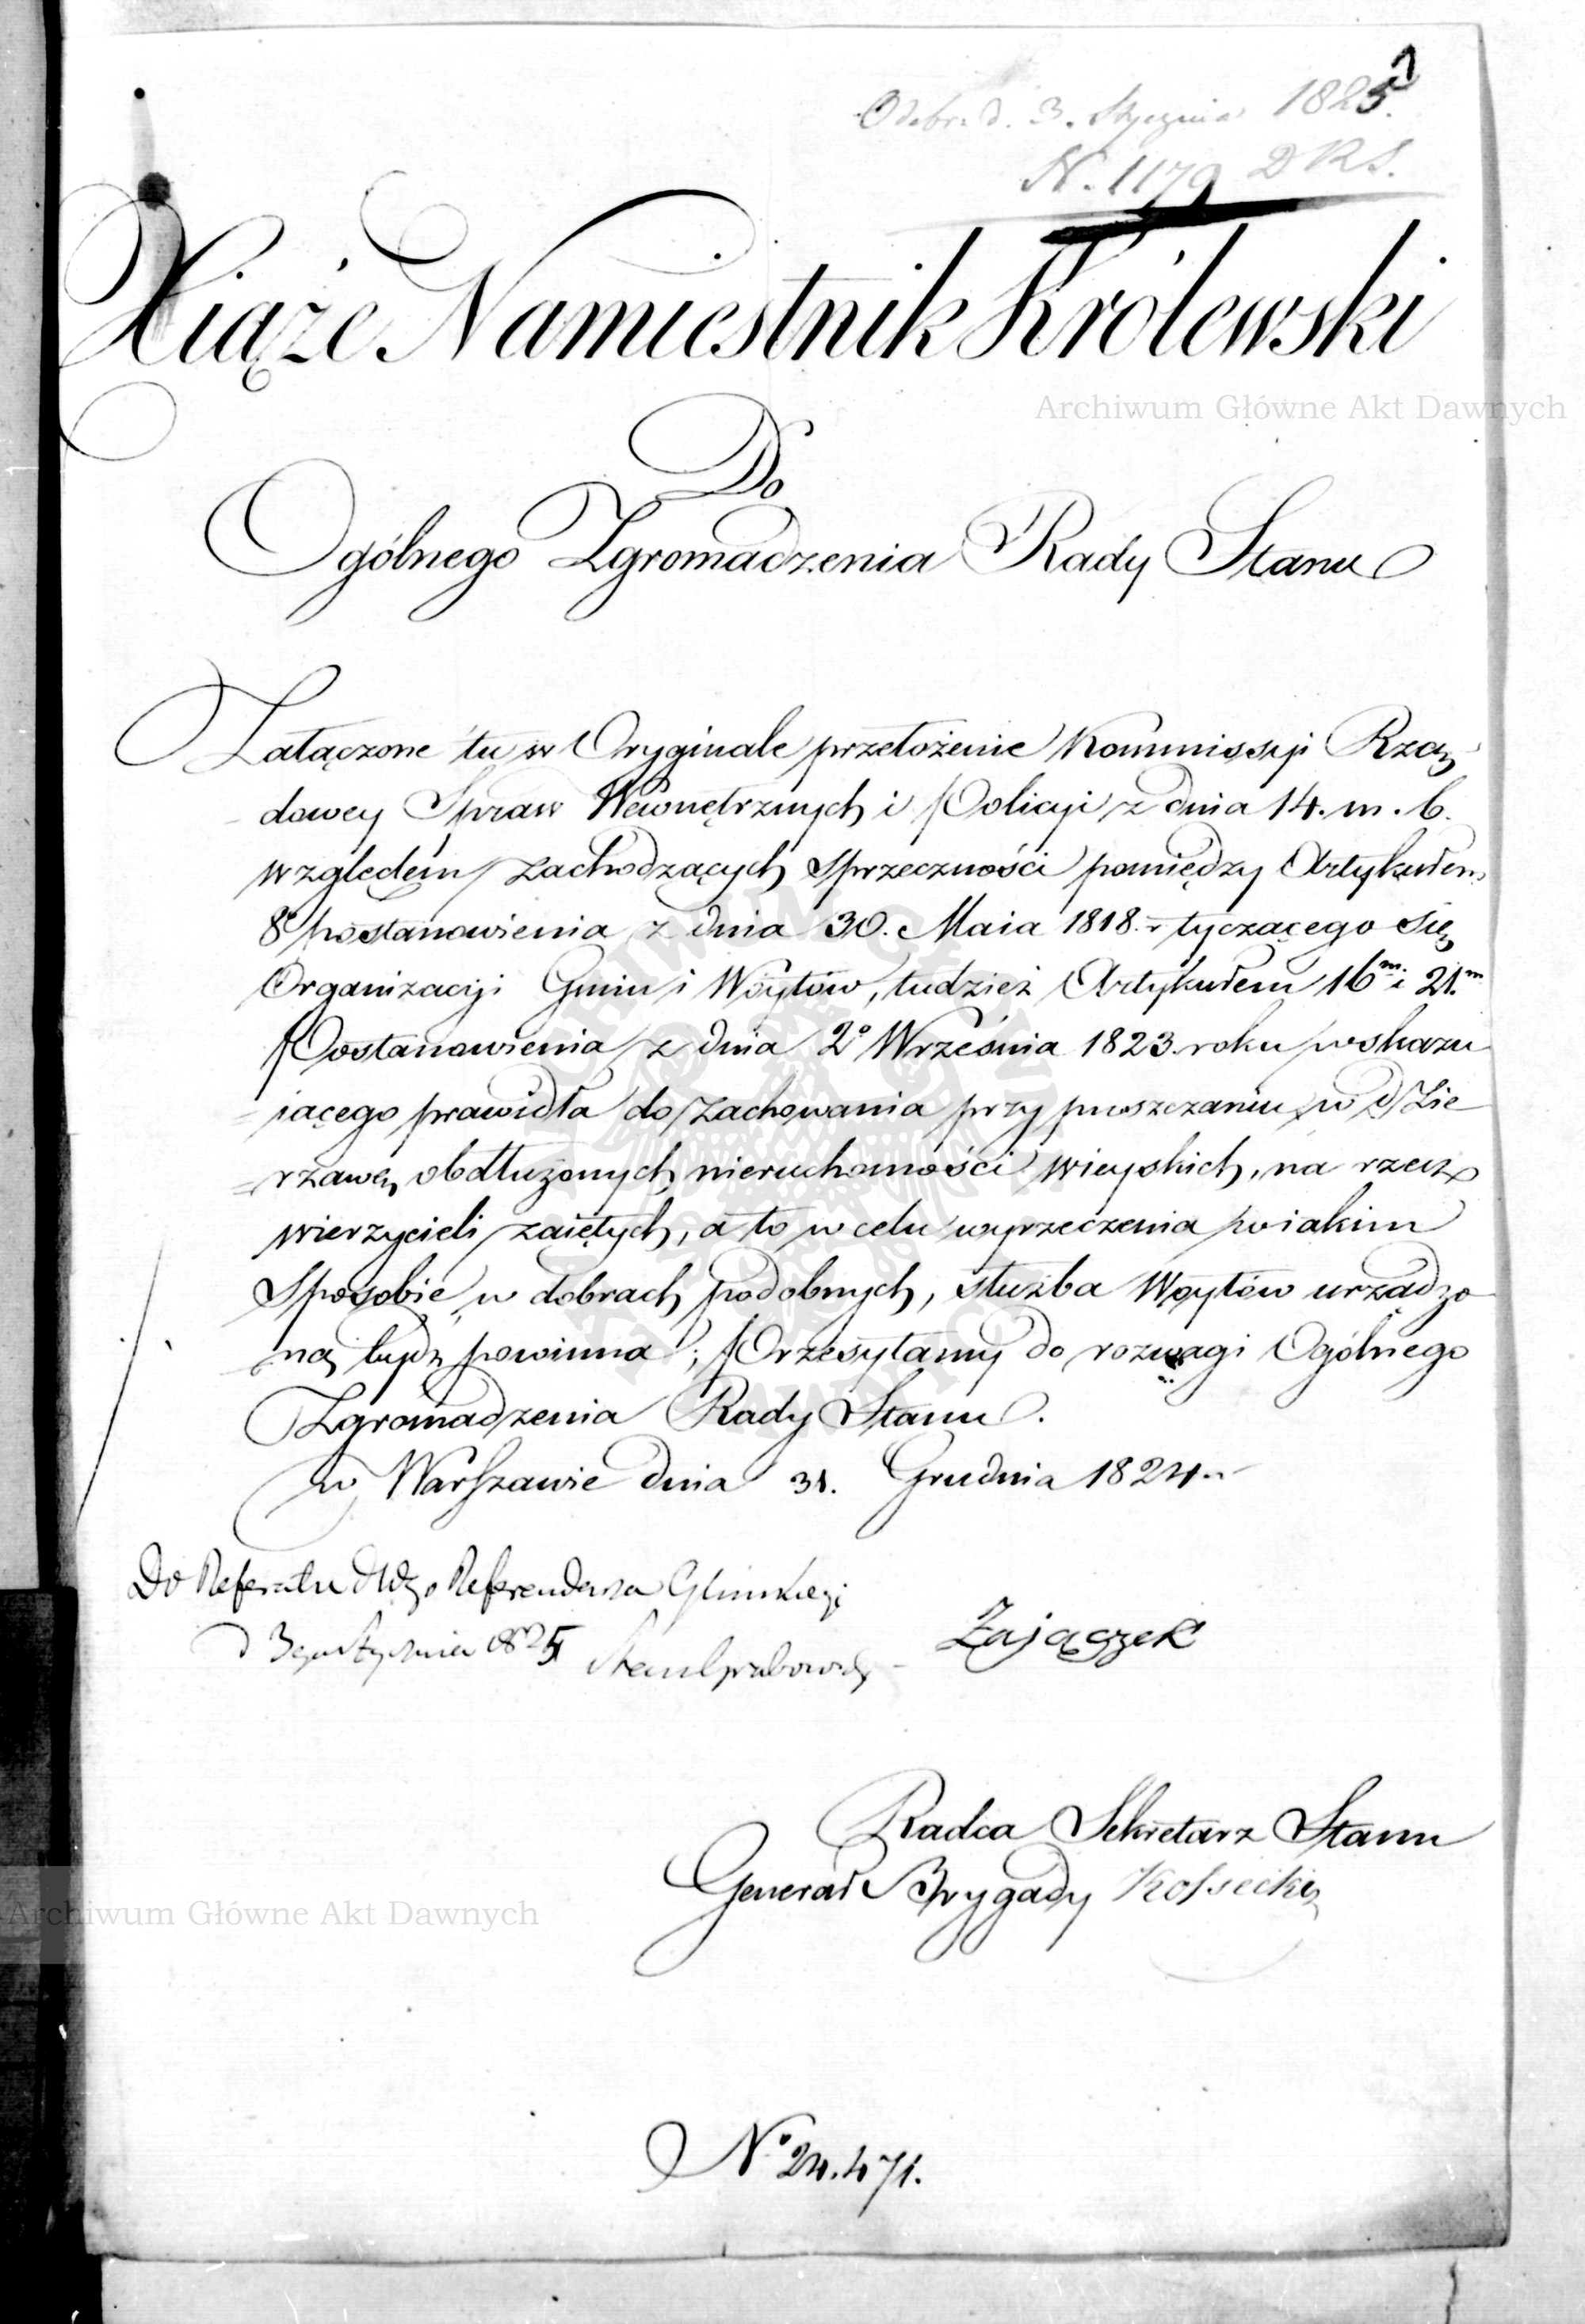 1
Odebr. d. 3. Stycznia 1825.
N. 1179 D R S.
Xiąże Namiestnik Królewski
Archiwum Główne Akt Dawnych
Do
Ogólnego Zgromadzenia Rady Stanu
Załączone tu w Oryginale przełożenie Kommissyi Rzą-
dowey Spraw Wewnętrznych i Policyi z dnia 14. m. b.
względem zachodzących sprzeczności pomiędzy Artykułem
8º postanowienia z dnia 30. Maia 1818. r tyczącego się
Organizacyi Gmin i Woytów, tudzież Artykułem 16m i 21.m
Postanowienia z dnia 2º Września 1823. roku wskazu
=iącego prawidła do zachowania przy puszczaniu w dzie
=rzawę obdłużonych nieruchomości wieyskich, na rzecz
wierzycieli zaiętych, a to w celu wyrzeczenia w iakim
Sposobie w dobrach podobnych, służba Woytów urządzo
=ną bydź powinna; Przesyłamy do rozwagi Ogólnego
Zgromadzenia Rady Stanu.
w Warszawie dnia 31. Grudnia 1824. r
Do Referatu Referendarza Glinkiego
d 3go Stycznia 1825
Zajączek
Radca Sekretarz Stanu
Generał Brygady Kossecki
Archiwum Główne Akt Dawnych
Nº 24.471.